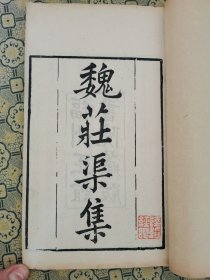 魏莊渠集